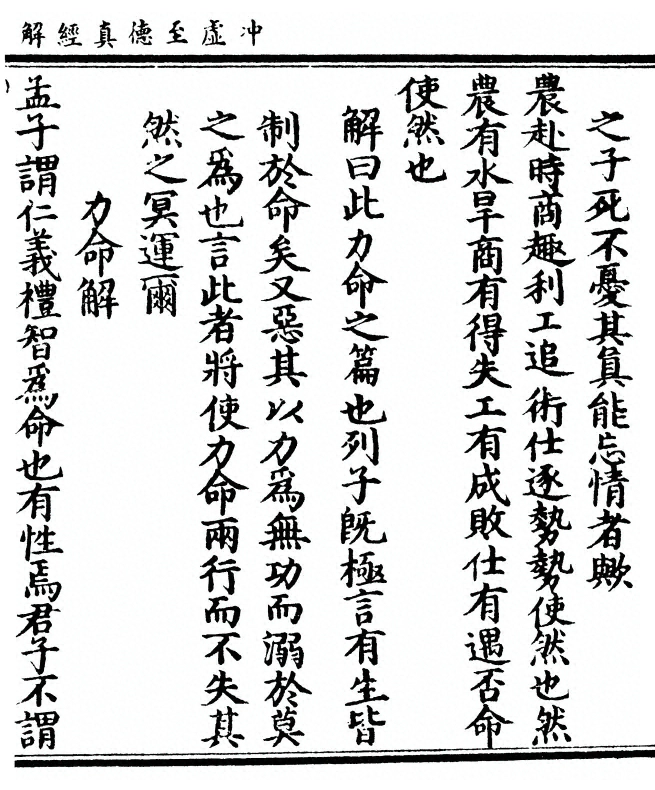 冲虛至德真經解
之子死不憂其真能忘情者歟
農赴時商趣利工追術仕逐勢勢使然也然
農有水旱商有得失工有成敗仕有遇否命
使然也
解曰此力命之篇也列子旣極言有生皆
制於命矣又惡其以力爲無功而溺於莫
之爲也言此者將使力命兩行而不失其
然之冥運爾
力命解
孟子謂仁義禮智爲命也有性焉君子不謂